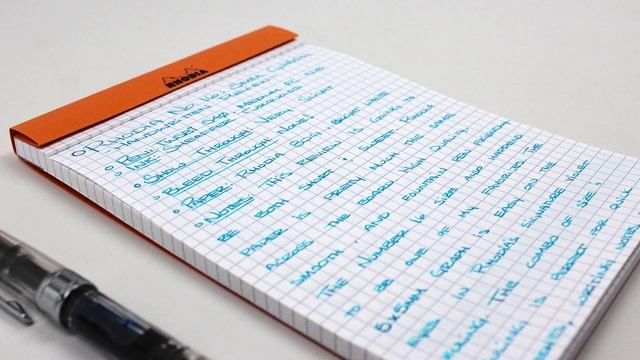 RHODIA
RHODIA No 16: 5x5mm GRAPH
HANDWRITTEN REVIEW
PEN: TWSBI 540 MEDIUM
INK: SHEAFFER
SHOW THROUGH: VERY SLIGHT
BLEED THROUGH: NONE!
PAPER: RHODIA 80G, BRIGHT WHITE
NOTES: THIS REVIEW IS GOING TO
BE BOTH SHORT & SWEET. RHODIA
PAPER IS PRETTY MUCH THE SAME
ACROSS THE BOARD: HIGH QUALITY,
SMOOTH, AND FOUNTAIN PEN FRIENDLY.
THE NUMBER 16 SIZE ALSO HAPPENS
TO BE ONE OF MY FAVORITES. THE
5x5mm GRAPH IS EASY ON THE
EYES IN RHODIA'S SIGNATURE VIOLET
RULING. THE COMBO OF SIZE &
RULING IS PERFECT FOR QUICK